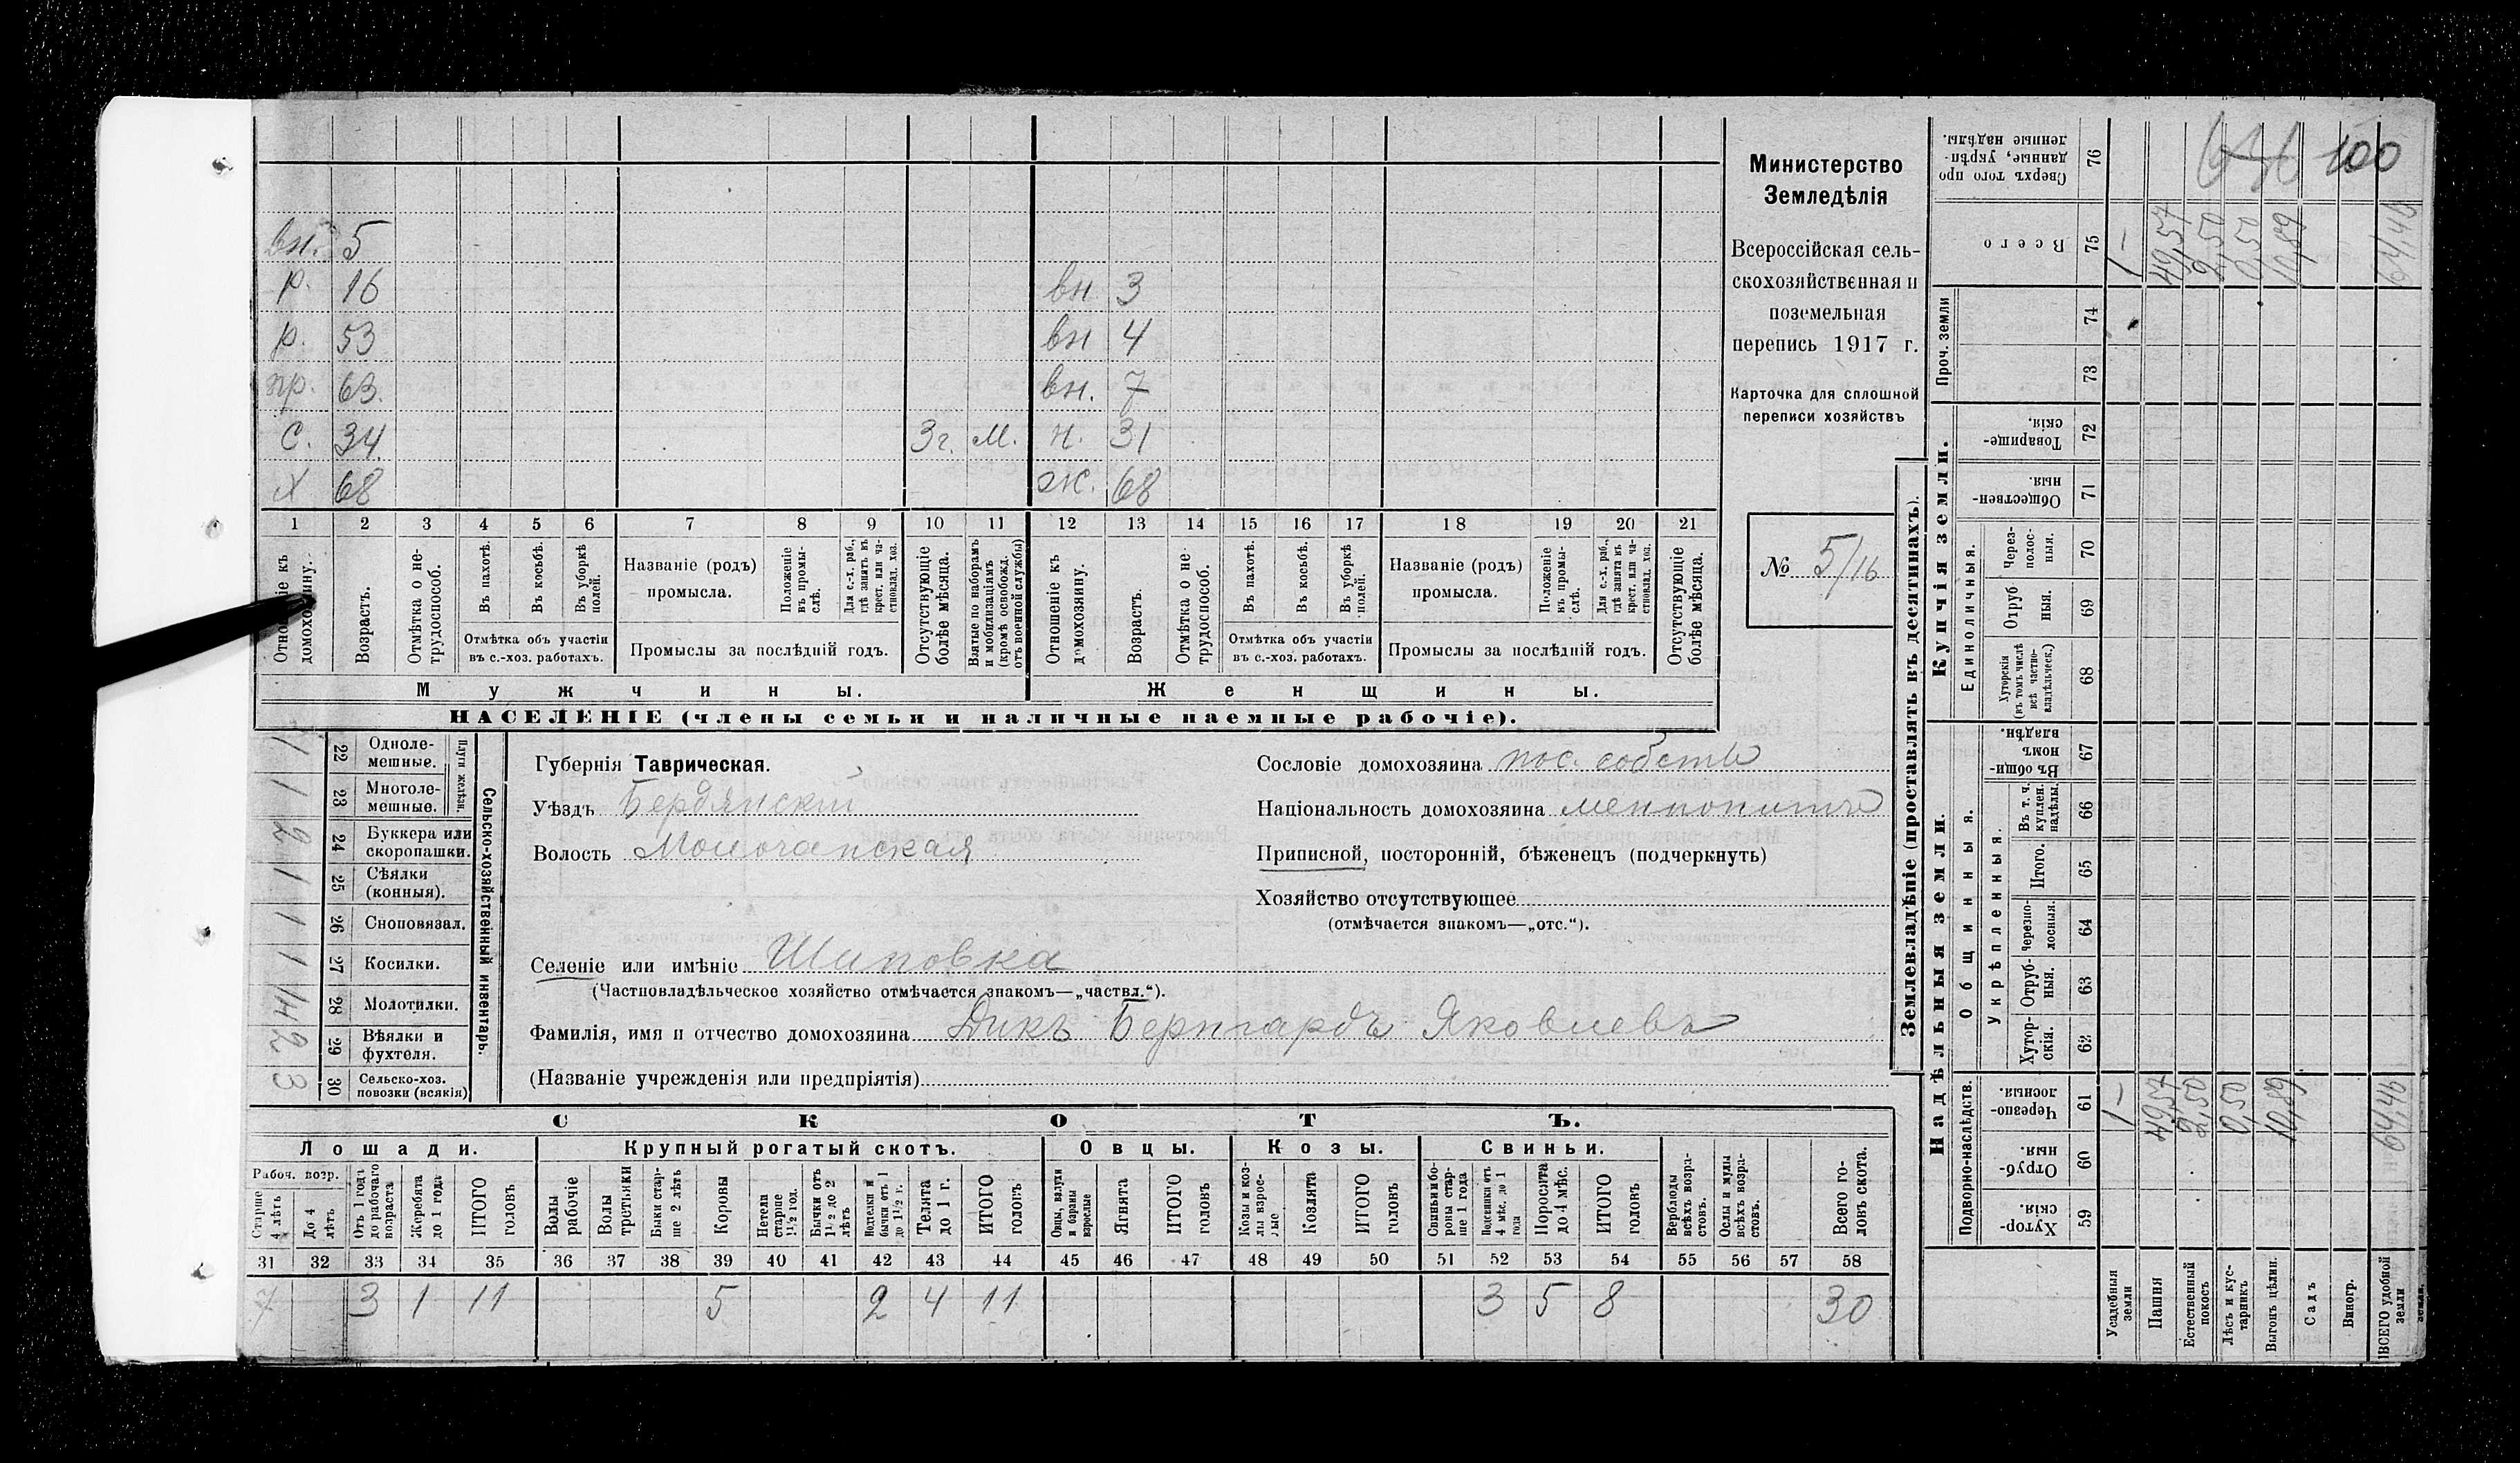 Министерство
Земледѣлія
Всероссійская сель-
скохозяйственная и
поземельная
перепись 1917 г.
Карточка для сплошной
переписи хозяйствъ
№ 5/16
вн. 5
р. 16 вн 3
р. 53 вн 4
пр. 63. вн. 7
с. 34. 3г. м. н. 31
х 68 ж. 68
1 2 3 4 5 6 7 8 9 10 11 12 13 14 15 16 17 18 19 20 21
Отношеніе къ домохозяину.
Возрастъ.
Отмѣтка о не-трудоспособ.
Въ пахотѣ.
Въ косьбѣ.
Въ уборкѣ полей.
Отмѣтка объ участіи
въ с.-хоз. работахъ.
Названіе (родъ)
промысла.
Положеніе въ промы-слѣ.
Для с.-х. раб., гдѣ занятъ въ крест. или ча-стновлад. хоз.
Промыслы за послѣдній годъ.
Отсутствующіе болѣе мѣсяца.
Взятые по наборамъ и мобилизаціямъ (кромѣ освобожд. отъ военной службы)
Отношеніе къ домохозяину.
Возрастъ.
Отмѣтка о не-трудоспособ.
Въ пахотѣ.
Въ косьбѣ.
Въ уборкѣ полей.
Отмѣтка объ участіи
въ с.-хоз. работахъ.
Названіе (родъ)
промысла.
Положеніе въ промы-слѣ.
Для с.-х. раб., гдѣ занята въ крест. или ча-стновлад. хоз.
Промыслы за послѣдній годъ.
Отсутствующіе болѣе мѣсяца.
Мужчины. Женщины.
НАСЕЛЕНІЕ (члены семьи и наличные наемные рабочіе).
Сельско-хозяйственный инвентарь.
Плуги желѣзн.
1 22 Одноле-мешные.
1 23 Многоле-мешные.
2 24 Буккера или скоропашки.
1 25 Сѣялки (конныя).
1 26 Сноповязал.
1 27 Косилки.
28 Молотилки.
2 29 Вѣялки и фухтеля.
3 30 Сельско-хоз. повозки (всякія)
Губернія Таврическая.
Уѣздъ Бердянскій
Волость Молочанская
Сословіе домохозяина пос. собств
Національность домохозяина меннонитъ
Приписной, посторонній, бѣженецъ (подчеркнуть)
Хозяйство отсутствующее
(отмѣчается знакомъ—„отс.“).
Селеніе или имѣніе Шиповка
(Частновладѣльческое хозяйство отмѣчается знакомъ—„частвл.“).
Фамилія, имя и отчество домохозяина Дикъ Бернгардъ Яковлевъ
(Названіе учрежденія или предпріятія)
СКОТЪ.
Лошади. Крупный рогатый скотъ. Овцы. Козы. Свиньи.
Рабоч. возр.
Старше 4 лѣтъ
До 4 лѣтъ
Отъ 1 года до рабочаго возраста
Жеребята до 1 года
ИТОГО головъ
Волы рабочіе
Волы третьяки
Быки стар-ше 2 лѣтъ
Коровы
Нетели старше 1½ год.
Бычки отъ 1½ до 2 лѣтъ
Подтелки и бычки отъ 1 до 1½ г.
Телята до 1 г.
ИТОГО головъ
Овцы, валухи и бараны взрослые
Ягнята
ИТОГО головъ
Козы и коз-лы взрос-лые
Козлята
ИТОГО головъ
Свиньи и бо-роны стар-ше 1 года
Подсвинки отъ 4 мѣс. до 1 года
Поросята до 4 мѣс.
ИТОГО головъ
Верблюды всѣхъ возра-стовъ.
Ослы и мулы всѣхъ возра-стовъ.
Всего го-ловъ скота.
31 32 33 34 35 36 37 38 39 40 41 42 43 44 45 46 47 48 49 50 51 52 53 54 55 56 57 58
7 3 1 11 5 2 4 11 3 5 8 30
Землевладѣніе (проставлять въ десятинахъ).
Надѣльныя земли. Купчія земли. Проч. земли
Подворно-наслѣдств.
Общинныя.
Укрѣпленныя.
Единоличныя.
100
Сверхъ того про данные, укрѣп-ленные надѣлы. 76
Всего 75 1— 49,57 2,50 0,50 10,89 64,46
74
73
Товарище-скія. 72
Обществен-ныя. 71
Через-полос-ныя. 70
Отруб ныя. 69
Хуторскія (въ томъ числѣ всѣ частно-владѣльческ.) 68
Въ общин-номъ владѣн. 67
Въ т. ч. куплен. надѣлы. 66
Итого. 65
Черезпо-лосныя. 64
Отруб-ныя. 63
Хутор-скія. 62
Черезпо-лосныя. 61 1— 49,57 2,50 0,50 10,89 64,46
Отруб-ныя. 60
Хутор-скія. 59
Усадебныя земли
Пашня
Естественный покосъ
Лѣсъ и кус-тарникъ
Выгонъ цѣлин.
Садъ
Виногр.
ВСЕГО удобной земли